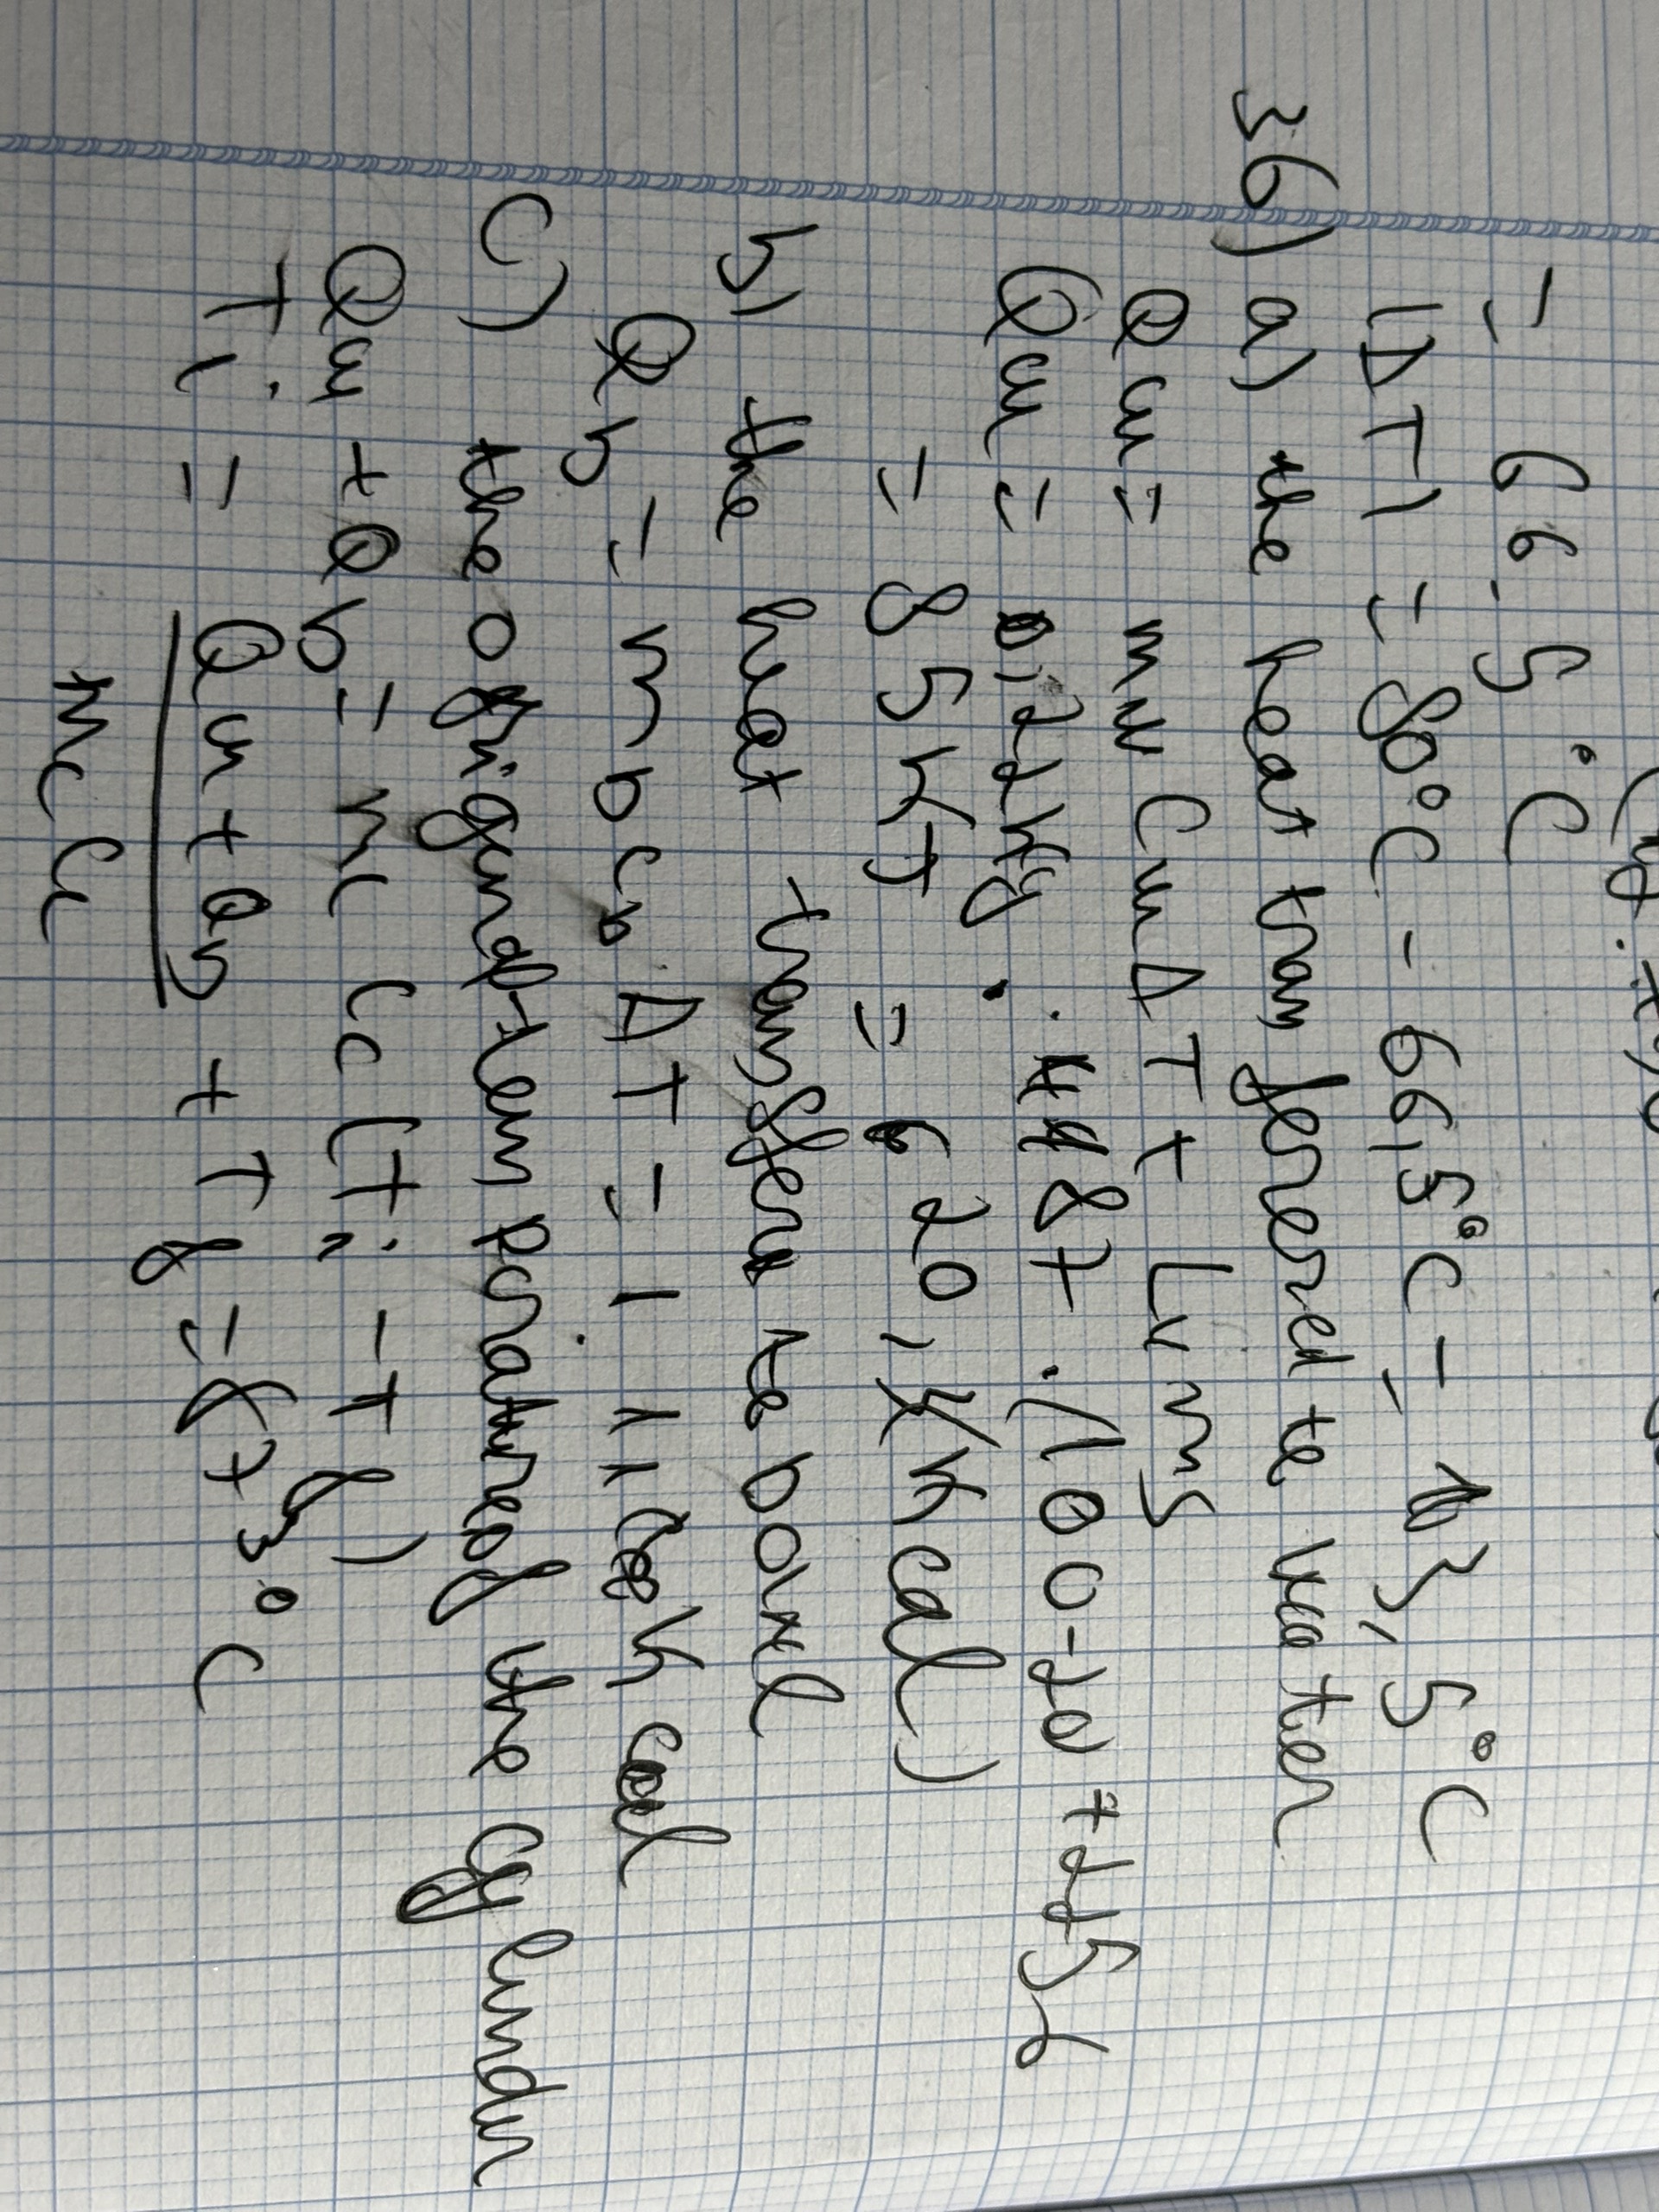 = 66,5°C
|ΔT| = 80°C - 66,5°C = 13,5°C
36) a) the heat transfered to water
Qw = mw Cw ΔT + Lv ms
Qw = 0,22kg . 4187 . (100-20 + 2256
= 85 kJ = (20, kcal)
b) the heat transfer to bowl
Qb = mb cb ΔT = 1.11 kcal
c) the original temperature of the cylinder
Qw + Qb = mc Cc (Ti - Tf)
Ti = Qw + Qb + Tf = 873°C
mc Cc